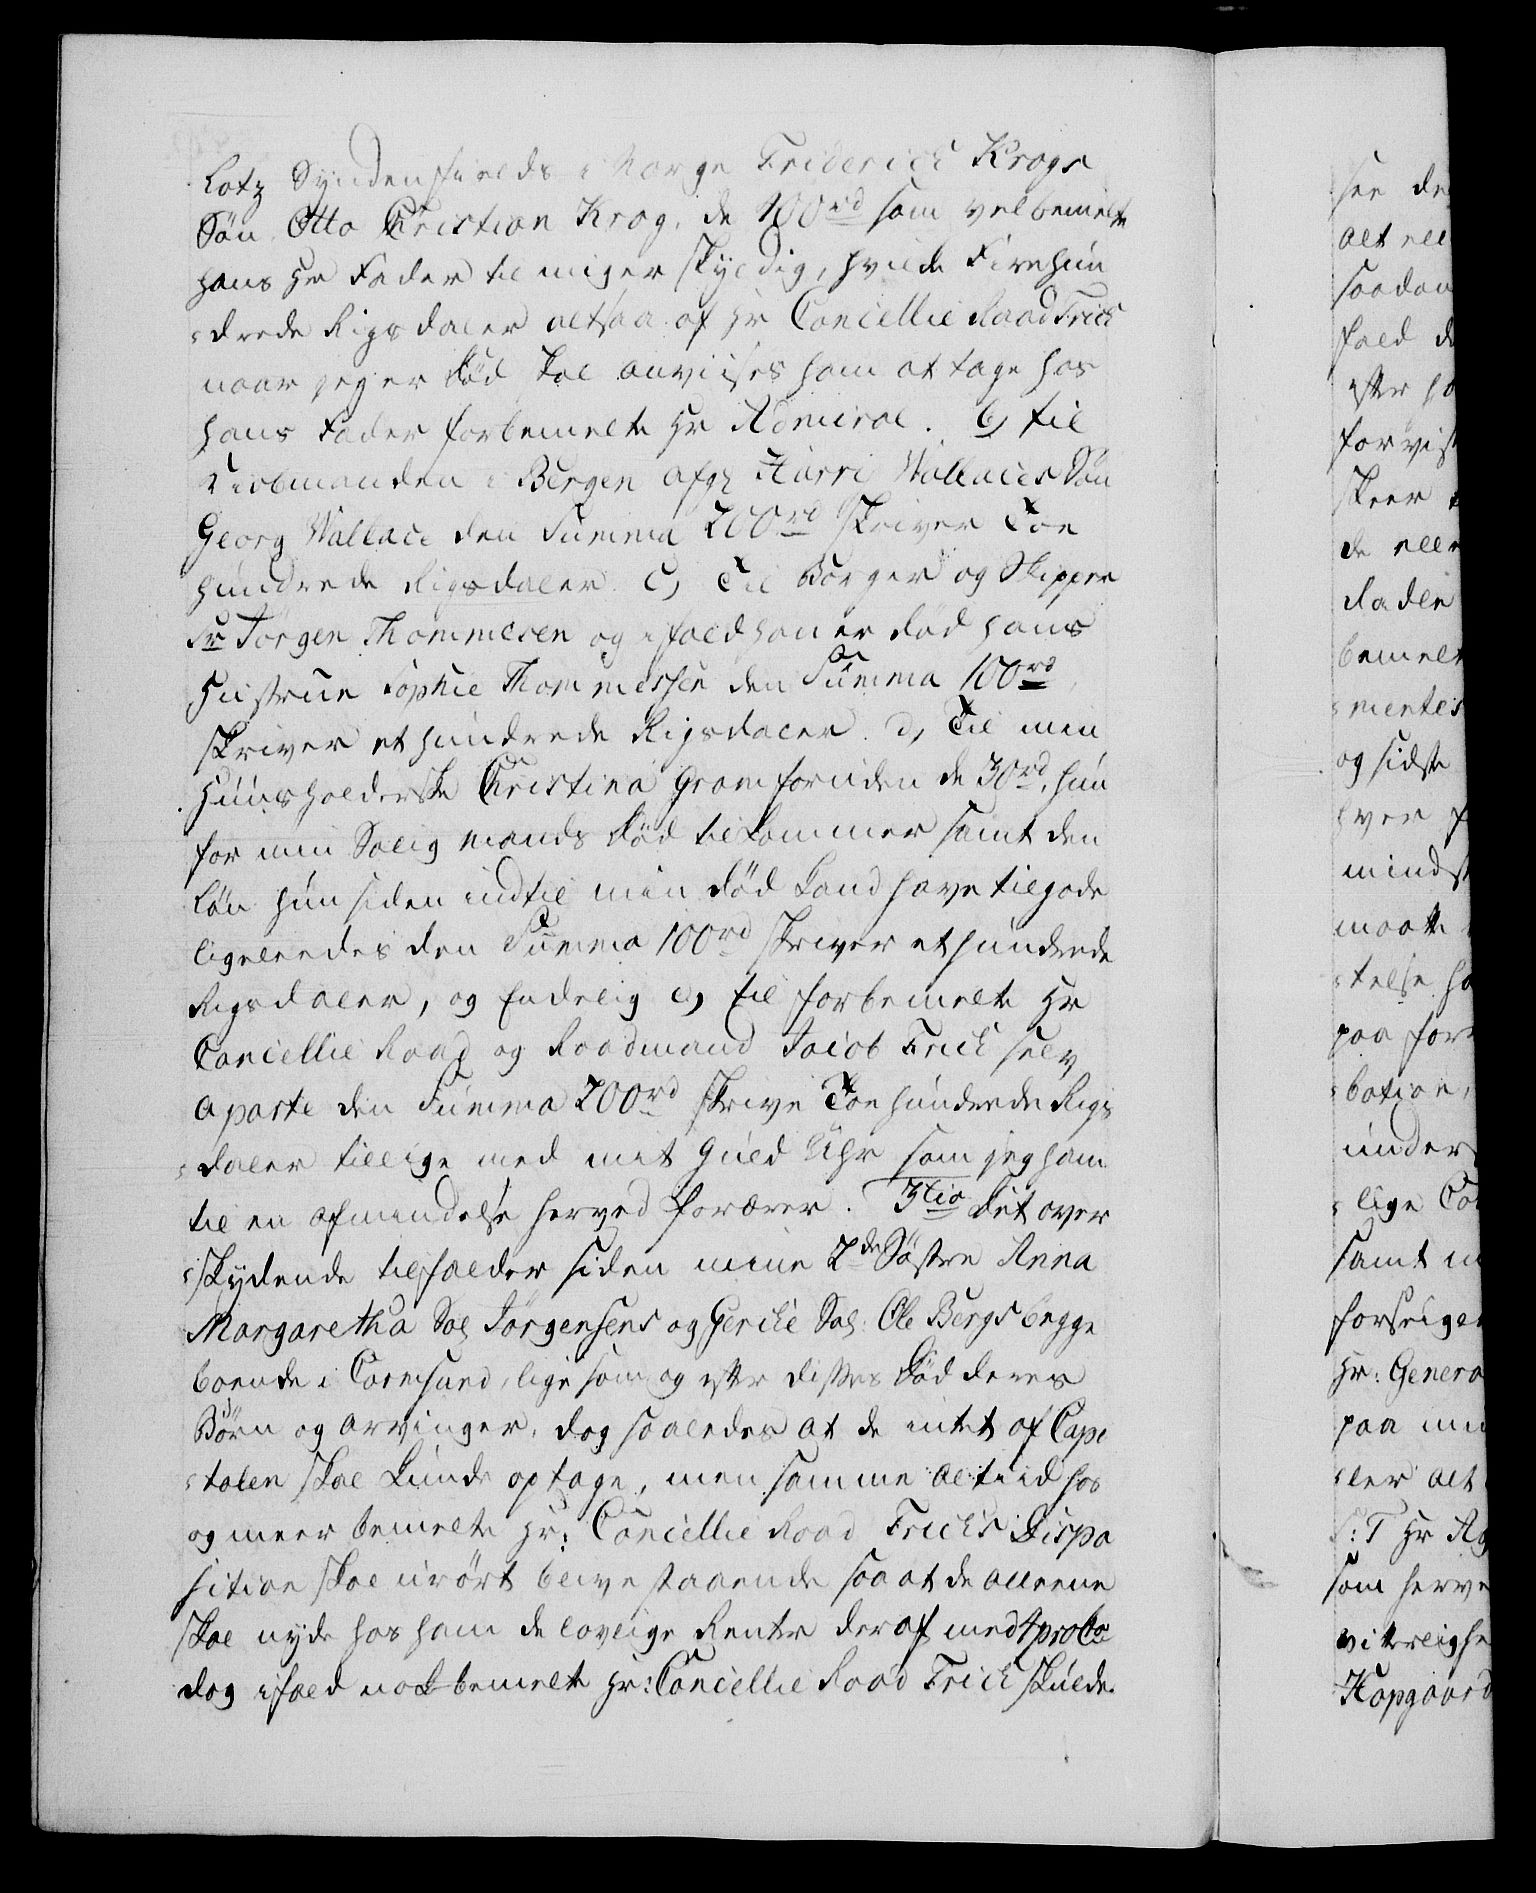 Lotz Syndenfields i Norge Friderich Krogs
Søn Otto Christian Krog, de 400rd som velbemelte
hans Hr Fader til mig er skyldig, hvilde Firehun
drede Rigsdaler altsaa af Hr Cancellie Raad Frich
naar jeg er død skal anviises ham at tage hos
hans Fader forbemelte Hr Admiral. b, til
Kiøbmanden i Bergen afg: Harri Wallaces Søn
Georg Wallace den Summa 200rd skriver Toe
hundrede Rigsdaler. C, Til Borger og Skipper
Sr Jørgen Thommesen og ifald han er død hans
Hustrue Sophie Thommessen den Summa 100rd
skriver et hundrede Rigsdaler. d, Til min
Huusholderske Christina Gram foruden de 30rd, hun
for min Salig Mands død tilkommer samt den
Løn hun siden indtil min død kand have tilgode
ligeleedes den Summa 100rd skriver et hundrede
Rigsdaler, og Endelig e, til forbemelte Hr
Cancellie Raad og Raadmand Jacob Frich selv
aparte den Summa 200rd skrive Toe hundrede Rigs
daler tillige med mit Guld Uhr som jeg ham
til en afmindelse herved forærer. 3tio Det over
skydende tilfalder siden mine 2de Søstre Anna
Margaretha Sal Jørgensens og Gericke Sal: Ole Bergs begge
boende i Carmsund, lige som og efter disses død deres
Børn og Arvinger, dog saaledes at de intet af Capi
talen skal kunde optage, men samme altiid hos
og meer bemelte Hr: Cancellie Raad Frichs Dispo
sition skal urørt blive staaende saa at de alleene
skal nyde hos ham de lovlige Renter deraf med 4 pro Cto
dog ifald nok bemelte Hr: Cancellie Raad Frich skulde
see de
alt ell
saadan
fald d
efter ha
forvist
skeer
de elle
dadle
bemelt
mentes
og sidste
lver f
mindst
maatte
telse ha
paa for
bation,
under
lige Co
samt m
forseigel
Hr: Genera
paa min
ler alt
S: T Hr Ag
som herve
vitterlighe
Hapgaard